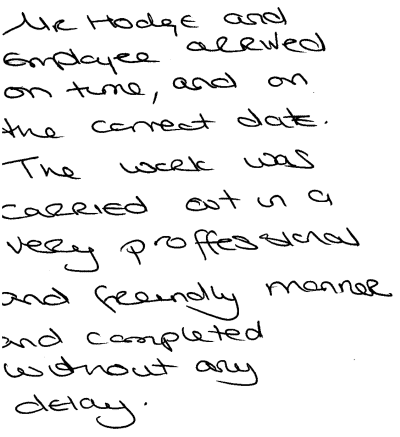 Mr Hodge and
Employee arrived
on time, and on
the correct date.
The work was
carried out in a
very proffessional
and freindly manner
and completed
without any
delay.